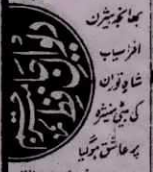 بھانجہ بیژن
افراسیاب
شاہ توران
کی بیٹی منیژہ
پر عاشق ہوگیا
دیوان حافظ